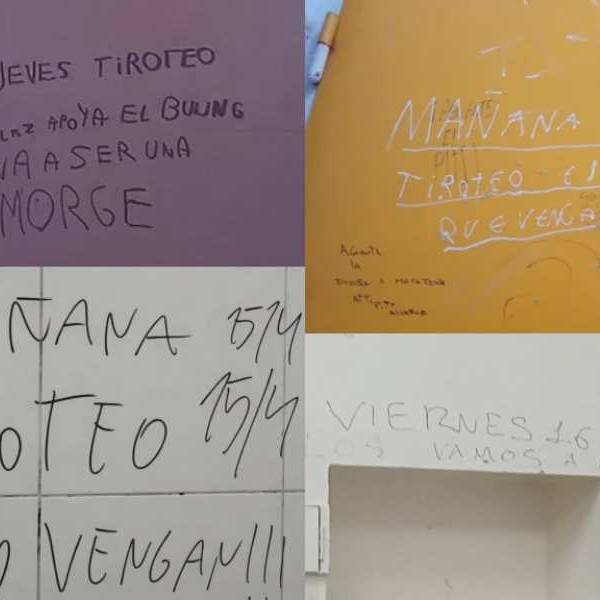 JEVES TiROTEO
APOYA EL BULING
VA A SER UNA
MORGE
MAÑANA
TiROTEO - ES
QUE VENGA
AGUANTE
la
ÑANA 15/4
OTEO 15/4
O VENGAN!!!
VIERNES 16
LOS VAMOS A